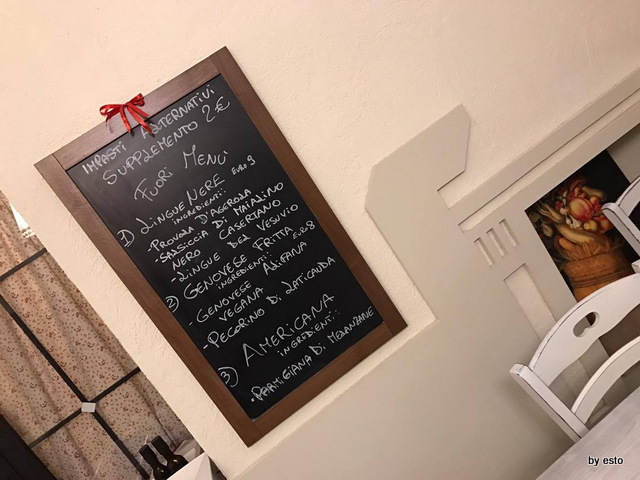 IMPASTI ALTERNATIVI
SUPPLEMENTO 2€
FUORI MENÙ
1) LINGUE NERE EURO 9
INGREDIENTI:
- PROVOLA D'AGEROLA
- SALSICCIA DI MAIALINO
NERO CASERTANO
- LINGUE DEL VESUVIO
2) GENOVESE FRITTA EURO 8
INGREDIENTI:
- GENOVESE ALIFANA
VEGANA
- PECORINO DI LATICAUDA
3) AMERICANA
INGREDIENTI:
• PARMIGIANA DI MELANZANE
by esto